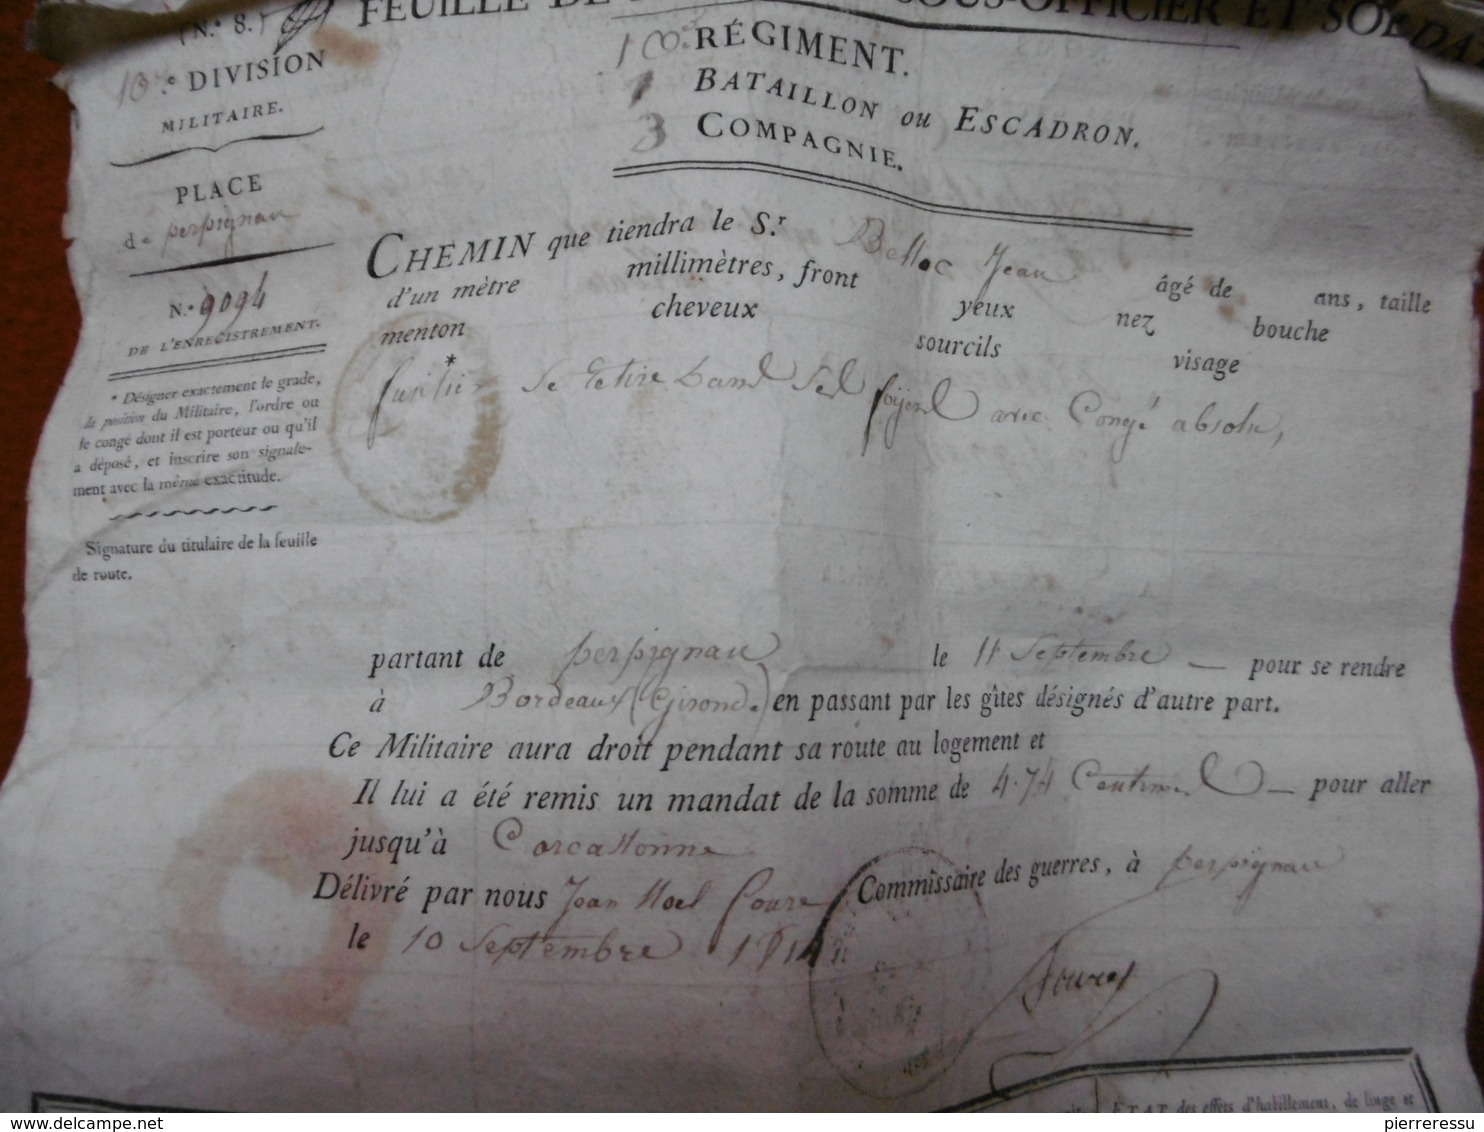 (N.º 8.)
FEUILLE DE SOUS-OFFICIER ET SOLDA
10.e DIVISION
MILITAIRE.
PLACE
de perpignan
N.º 9094
DE L'ENREGISTREMENT.
* Désigner exactement le grade,
la position du Militaire, l'ordre ou
le congé dont il est porteur ou qu'il
a déposé, et inscrire son signale-
ment avec la même exactitude.
Signature du titulaire de la feuille
de route.
10.e RÉGIMENT.
1 BATAILLON ou ESCADRON.
3 COMPAGNIE.
CHEMIN que tiendra le S.r Belloc Jean âgé de ans, taille
d'un mètre millimètres, front yeux nez bouche
menton cheveux sourcils visage
* fusilier Se Retire dans Ses foyers avec Congé absolu,
partant de perpignan le 11 Septembre — pour se rendre
à Bordeaux (Gironde) en passant par les gîtes désignés d'autre part.
Ce Militaire aura droit pendant sa route au logement et
Il lui a été remis un mandat de la somme de 4.74 Centimes — pour aller
jusqu'à Carcassonne
Délivré par nous Jean Noel Commissaire des guerres, à perpignan
le 10 Septembre 1814
ÉTAT des effets d'habillement, de linge et
pierreressu